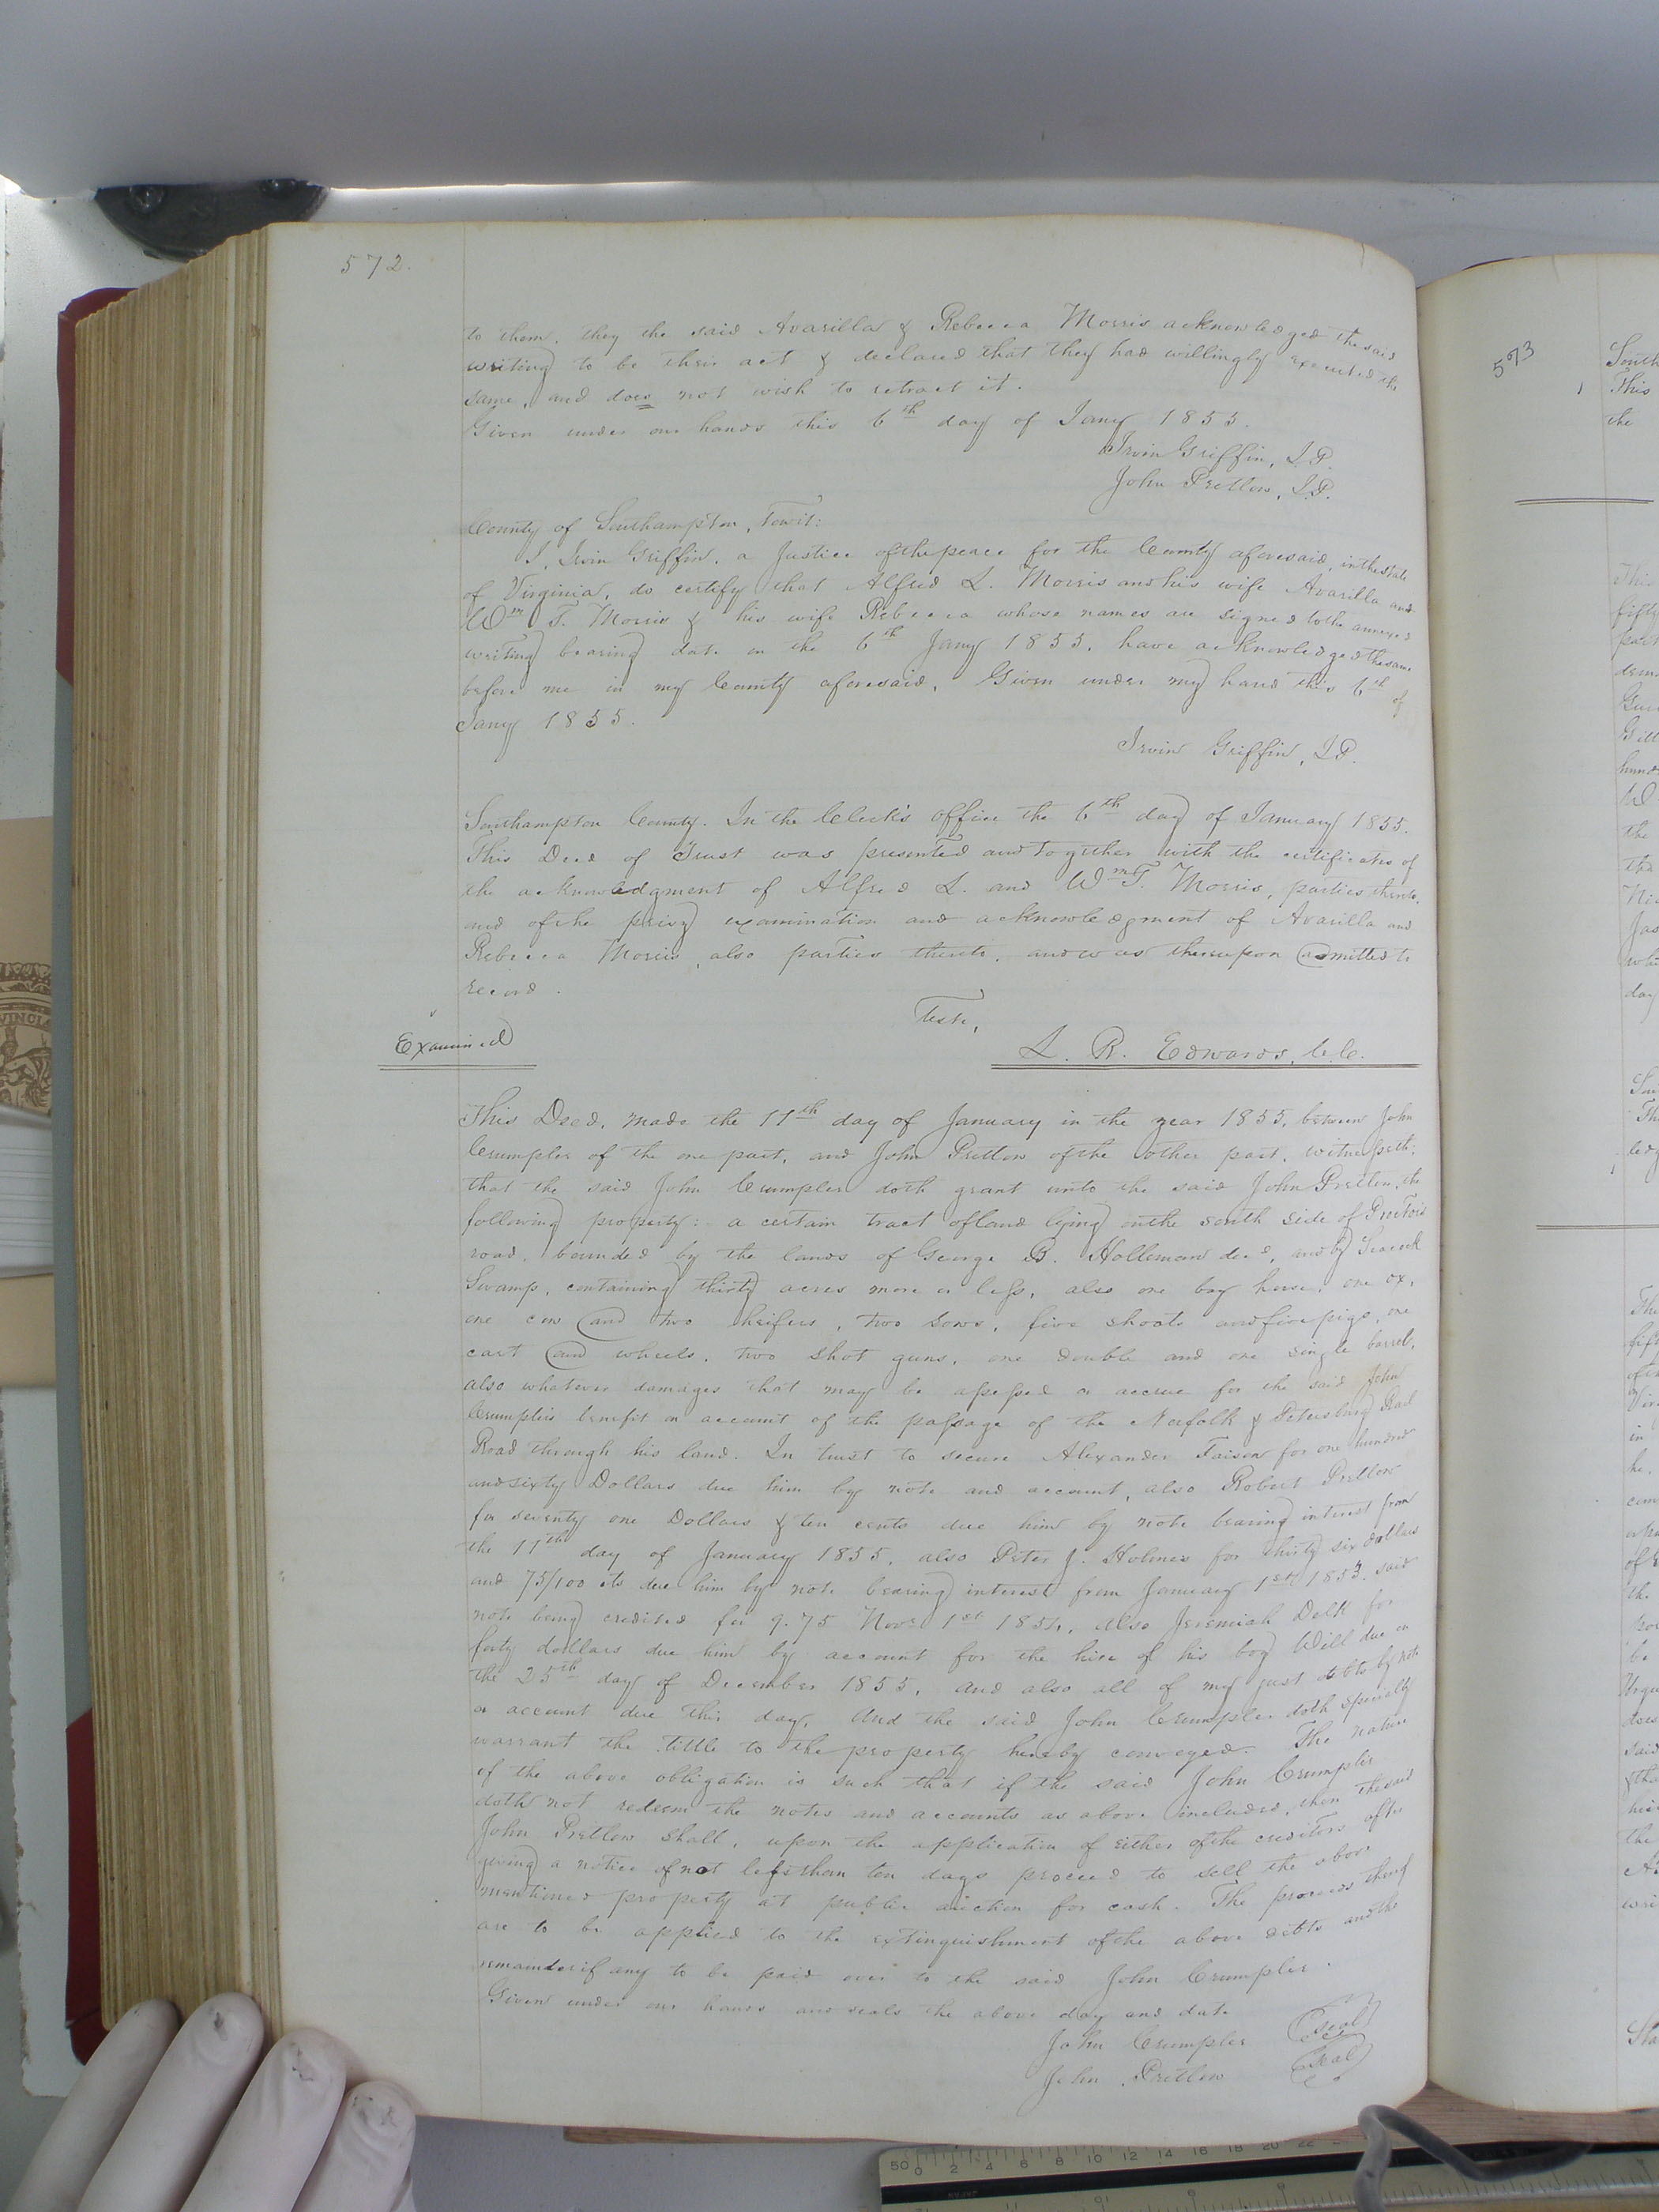 572.
to them, they the said Avarilla & Rebecca Morris acknowledged the said
writing to be their act & declared that they had willingly executed the
same, and does not wish to retract it.
Given under our hands this 6th day of Jany 1855.
Irvin Griffin, J.P.
John Pretlow, J.P.
County of Southampton, Towit:
I, Irvin Griffin, a Justice of the peace for the County aforesaid, in the State
of Virginia, do certify that Alfred L. Morris and his wife Avarilla and
Wm T. Morris & his wife Rebecca whose names are signed to the annexed
writing bearing date on the 6th Jany 1855, have acknowledged the same
before me in my County aforesaid. Given under my hand this 6th of
Jany 1855.
Irvin Griffin, J.P.
Southampton County. In the Clerk's office the 6th day of January 1855.
This Deed of Trust was presented and together with the certificates of
the acknowledgment of Alfred L. and Wm T. Morris, parties thereto,
and of the privy examination and acknowledgment of Avarilla and
Rebecca Morris, also parties thereto, and was thereupon admitted to
record.
Teste,
Examined
L. R. Edwards, C.C.
This Deed, made the 11th day of January in the year 1855, between John
Crumpler of the one part, and John Pretlow of the other part, witnesseth:
that the said John Crumpler doth grant unto the said John Pretlow, the
following property: a certain tract of land lying on the south side of Proctors
road, bounded by the lands of George B. Holleman decd, and by Seacock
Swamp, containing thirty acres more or less, also one bay horse, one ox,
one cow and two heifers, two sows, five shoats and five pigs, one
cart and wheels, two shot guns, one double and one single barrel,
also whatever damages that may be assessed or accrue for the said John
Crumpler's benefit on account of the passage of the Norfolk & Petersburg Rail
Road through his land. In trust to secure Alexander Faison for one hundred
and sixty Dollars due him by note and account, also Robert Pretlow
for seventy one Dollars & ten cents due him by note bearing interest from
the 11th day of January 1855, also Peter J. Holmes for thirty six dollars
and 75/100 cts due him by note bearing interest from January 1st 1853. said
note being credited for 9.75 Novr 1st 1854, also Jeremiah Delk for
forty dollars due him by account for the hire of his boy Will due on
the 25th day of December 1855, and also all of my just debts by note
or account due this day. And the said John Crumpler doth specially
warrant the tittle to the property hereby conveyed. The nature
of the above obligation is such that if the said John Crumpler
doth not redeem the notes and accounts as above included, then the said
John Pretlow shall, upon the application of either of the creditors after
giving a notice of not less than ten days proceed to sell the above
mentioned property at public auction for cash. The proceeds thereof
are to be applied to the extinguishment of the above debts and the
remainder if any to be paid over to the said John Crumpler.
Given under our hands and seals the above day and date
John Crumpler Seal
John Pretlow Seal
573
South
This
the